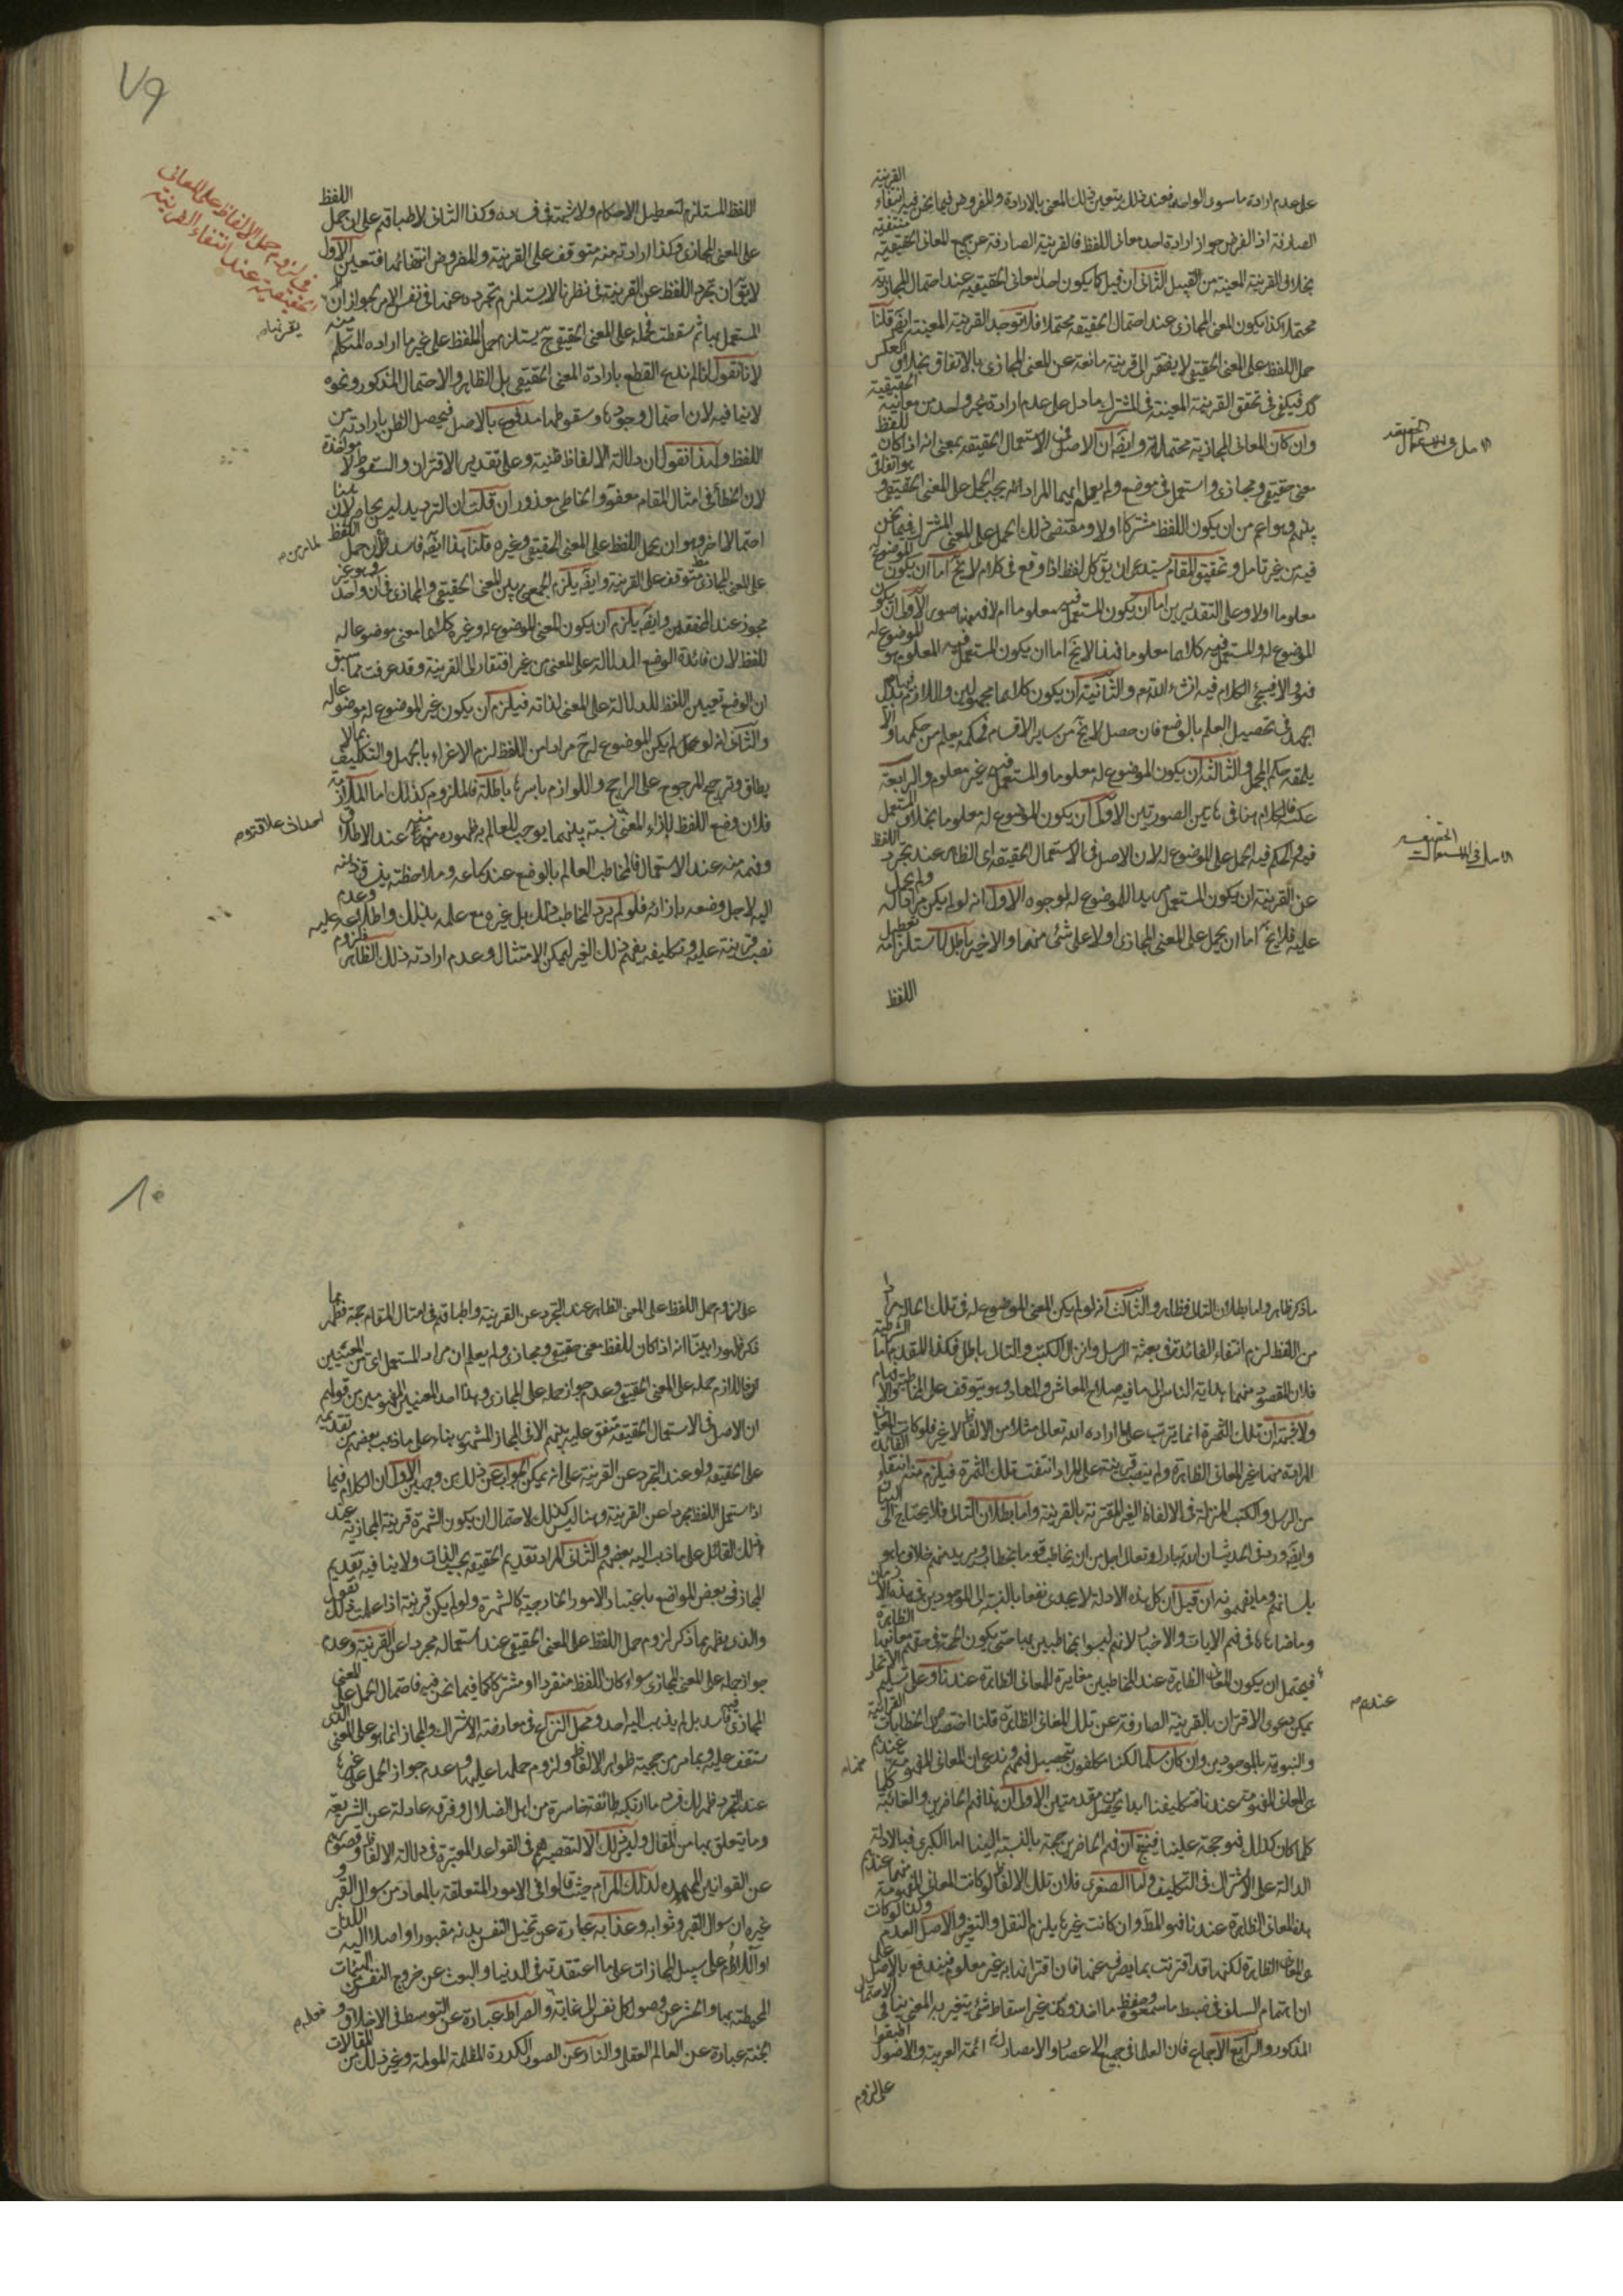 على عدم ارادة ما سوى الواحد فعند ذلك يتعين ذلك المعنى بالارادة والمفروض فيما نحن فيه انتفاء القرينة
الصارفة اذ الفرض جواز ارادة احد معانى اللفظ فالقرينة الصارفة عن جميع المعانى الحقيقية منتفية
بخلاف القرينة المعينة من القبيل الثانى ان قيل كما يكون احد المعانى الحقيقية عند احتمال المجازية
محتملا كذا يكون المعنى المجازى عند احتمال الحقيقة محتملا فلا توجد القرينة المعينة ايضا قلنا
حمل اللفظ على المعنى الحقيقى لا يفتقر الى قرينة مانعة عن المعنى المجازى بالاتفاق بخلاف العكس
فيكفى فى تحقق القرينة المعينة فى المشترك ما دل على عدم ارادة غير واحد من معانيه الحقيقية
وان كان المعانى المجازية محتملة وايضا ان الاصل فى الاستعمال الحقيقة بمعنى انه اذا كان للفظ
معنى حقيقى ومجازى واستعمل فى موضع ولم يعلم ايهما المراد انه يجب الحمل على المعنى الحقيقى
بينهم وهو اعم من ان يكون اللفظ مشتركا اولا ومقتضى ذلك الحمل على المعنى المشترك فيما نحن
فيه من غير تامل وتحقيق المقام يستدعى ان يق كل لفظ اذا وقع فى كلام لا يخ اما ان يكون الموضوع له
معلوما اولا وعلى التقديرين اما ان يكون المستعمل فيه معلوما ام لا فههنا صور الاول ان يكون
الموضوع له والمستعمل فيه كلاهما معلوما فهذا لا يخ اما ان يكون المستعمل فيه المعلوم هو الموضوع له
فهو والا فسيجئ الكلام فيه انشاء الله تم والثانية ان يكون كلاهما مجهولين واللازم بذل
الجهد فى تحصيل العلم بالوضع فان حصل لا يخ من ساير الاقسام فحكمه يعلم من حكمها والا
يلحقه حكم المجمل والثالث ان يكون الموضوع له معلوما والمستعمل فيه غير معلوم والرابعة
عكسه فالكلام هنا فى هاتين الصورتين الاول ان يكون الموضوع له معلوما بخلاف المستعمل
فيه والحكم فيه الحمل على الموضوع له لان الاصل فى الاستعمال الحقيقة اى الظاهر عند تجرد اللفظ
عن القرينة ان يكون المستعمل مريدا للموضوع له لوجوه الاول انه لو لم يكن مرادا له ولم يحمل
عليه فلا يخ اما ان يحمل على المعنى المجازى اولا على شئ منهما والاخير باطل لاستلزامه تعطيل
اللفظ
الاصل فى الاستعمال الحقيقة
الاصل فى الاستعمالات الحقيقة
٧٩
فى لزوم حمل الالفاظ على المعانى
الحقيقية عند انتفاء القرينة
اللفظ المستلزم لتعطيل الاحكام ولا شبهة فى فساده وكذا الثانى لاطباقهم على ان حمل اللفظ
على المعنى المجازى وكذا ارادته منه متوقف على القرينة والمفروض انتفائها فتعين الاول
لا يق ان تجرد اللفظ عن القرينة فى نظرنا لا يستلزم تجرده عنها فى نفس الامر لجواز ان
المستعمل بها ثم سقطت فحمله على المعنى الحقيقى ح يستلزم حمل اللفظ على غير ما اراده المتكلم منه
لانا نقول انا لم ندع القطع بارادة المعنى الحقيقى بل الظاهر والاحتمال المذكور ونحوه
لا ينافيه لان احتمال وجودها وسقوطها مدفوع بالاصل فيحصل الظن بارادته من
اللفظ ولهذا نقول ان دلالة الالفاظ ظنية وعلى تقدير الاقتران والسقوط لا مؤاخذة
لان الخطا فى امثال المقام معفو والخاطى معذور ان قلت ان الترديد ليس بحاصر لان هنا
احتمالا اخر وهو ان يحمل اللفظ على المعنى الحقيقى وغيره قلنا هذا ايضا فاسد لان حمل اللفظ
على المعنى المجازى متوقف على القرينة وايضا يلزم الجمع بين المعنى الحقيقى والمجازى فى ان واحد وهو غير
مجوز عند المحققين وايضا يلزم ان يكون المعنى الموضوع له وغيره كلاهما معنى موضوعا له
للفظ لان فائدة الوضع الدلالة على المعنى من غير افتقار الى القرينة وقد عرفت مما سبق
ان الوضع تعيين اللفظ للدلالة على المعنى لذاته فيلزم ان يكون غير الموضوع له موضوعا له
والثانى انه لو لم يكن الموضوع له ح مرادا من اللفظ لزم الاغراء بالجهل والتكليف بما لا
يطاق وترجيح المرجوح على الراجح واللوازم باسرها باطلة فالملزوم كذلك اما الملازمة
فلان وضع اللفظ بازاء المعنى نسبة بينهما يوجب للعالم بها ظهوره منه عند الاطلاق
وفهمه منه عند الاستعمال فالمخاطب العالم بالوضع عند سماعه وملاحظته يذهب ذهنه
اليه لاجل وضعه بازائه فلو لم يرد المخاطب ذلك بل غيره مع علمه بذلك واطلاعه عليه وعدم
نصب قرينة عليه وتكليفه بفهم ذلك الغير لم يمكن الامتثال وعدم ارادته ذلك الظاهر فلزوم
ما ذكر ظاهر واما بطلان التالى فظاهر والثالث انه لو لم يكن المعنى الموضوع له فى تلك الحال مرادا
من اللفظ لزم انتفاء الفائدة فى بعثة الرسل وانزال الكتب والتالى باطل فكذا المقدم اما الشرطية
فلان المقصود منهما هداية الناس الى ما فيه صلاح المعاش والمعاد وهو يتوقف على
ولا شبهة ان تلك الثمرة انما يترتب على ما اراده الله تعالى مثلا من الالفاظ لا غير فلو كانت المعانى
المرادة منها غير المعانى الظاهرة ولم ينصب قرينة على المراد انتفت تلك الثمرة فيلزم منه انتفاء الفائدة
من الرسل والكتب المنزلة فى الالفاظ الغير المقترنة بالقرينة واما بطلان التالى فلا يحتاج الى البيان
وايضا ورد فى الحديث ان الله تبارك وتعالى اجل من ان يخاطب قوما بخطاب ويريد منهم خلاف ما هو
بلسانهم وما يفهمونه ان قيل ان كل هذه الادلة لا يجدى نفعا بالنسبة الى الموجودين فى هذه الازمان
وما ضاهاها فى فهم الايات والاخبار لانهم ليسوا بمخاطبين بها حتى يكون الحجة فى حقهم معانيها الظاهرة
فيحتمل ان يكون المعانى الظاهرة عند المخاطبين مغايرة للمعانى الظاهرة عندنا وعلى تسليم الاتحاد
يمكن دعوى الاقتران بالقرينة الصارفة عن تلك المعانى الظاهرة قلنا اختصاص الخطابات القرانية
والنبوية بالموجودين وان كان مسلما لكنا مكلفون بتحصيل فهمهم وندعى ان المعانى المفهومة عندهم
هى المعانى المفهومة عندنا فتكليفنا انما يحصل من مقدمتين الاول ان هذا فهم الحاضرين والثانية
كلما كان كذلك فهو حجة علينا فينتج ان فهم الحاضرين حجة بالنسبة الينا اما الكبرى فبالادلة
الدالة على الاشتراك فى التكليف واما الصغرى فلان تلك الالفاظ لو كانت المعانى المفهومة منها عندهم
هذه المعانى الظاهرة عندنا فهو المط وان كانت غيرها يلزم النقل والتغير والاصل العدم وكذا لو كانت
هى المعانى الظاهرة لكنها قد اقترنت بما يصرفه عنها فان اقترانها به غير معلوم فيندفع بالاصل على
ان اهتمام السلف فى ضبط ما سمعوه وحفظ ما اخذوه من غير اسقاط شئ يتغير به المعنى ينافى الاحتمال
المذكور والرابع الاجماع فان العلماء فى جميع الاعصار والامصار من ائمة العربية والاصول اطبقوا
على لزوم
عندهم
٨٠
على لزوم حمل اللفظ على المعنى الظاهر عند التجرد عن القرينة واطباقهم فى امثال المقام حجة فظهر مما
ذكر ظهورا بينا انه اذا كان للفظ معنى حقيقى ومجازى ولم يعلم ان مراد المستعمل اى من المعنيين
فاللازم حمله على المعنى الحقيقى وعدم جواز حمله على المجازى وهذا احد المعنيين المفهومين من قولهم
ان الاصل فى الاستعمال الحقيقة متفق عليه بينهم الا فى المجاز المشهور بناء على ما ذهب بعضهم من تقديمه
على الحقيقة ولو عند التجرد عن القرينة على انه يمكن الجواب عن ذلك من وجهين الاول ان الكلام فيما
اذا استعمل اللفظ مجردا عن القرينة وهنا ليس كذلك لاحتمال ان يكون الشهرة قرينة المجازية عند
ذلك القائل على ما ذهب اليه بعضهم والثانى المراد تقديم الحقيقة بحسب الذات ولا ينافيه تقديم
المجاز فى بعض المواضع باعتبار الامور الخارجية كالشهرة ولو لم يكن قرينة اذا علمت ذلك نقول
والذى يظهر بما ذكر لزوم حمل اللفظ على المعنى الحقيقى عند استعماله مجردا عن القرينة وعدم
جواز حمله على المعنى المجازى سواء كان اللفظ منفردا او مشتركا كما فيما نحن فيه فاحتمال الحمل على المعنى
المجازى فيه فاسد بل لم يذهب اليه احد ومحل النزاع فى معارضة الاشتراك والمجاز انما هو على المعنى الذى
ستقف عليه وبما مر من حجية ظواهر الالفاظ ولزوم حملها عليها وعدم جواز الحمل على غيرها
عند التجرد ظهر لك فساد ما ارتكبه طائفة خاسرة من اهل الضلال وفرقة عادلة عن الشريعة
وما يتعلق بها من المقال وليس ذلك الا لتقصيرهم فى القواعد المعتبرة فى دلالة الالفاظ وقصورهم
عن القوانين الممهدة لذلك المرام حيث قالوا فى الامور المتعلقة بالمعاد من سوال القبر و
غيره ان سوال القبر وثوابه وعذابه عبارة عن تخيل النفس بدنه مقبورا واصلا اليه اللذات
او الالام على سبيل المجازات على ما اعتقدته فى الدنيا والبعث عن خروج النفس من الهيئات
المحيطة بها والحشر عن وصول كل نفس الى غايته والصراط عبارة عن التوسط فى الاخلاق و
الجنة عبارة عن العالم العقلى والنار عن الصور الكدرة المظلمة المولمة وغير ذلك من المقالات